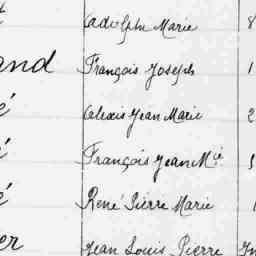 Adolphe Marie 8
and François Joseph 1
é Alexis Jean Marie 2
é François Jean Mie
é René Pierre Marie
er Jean Louis Pierre